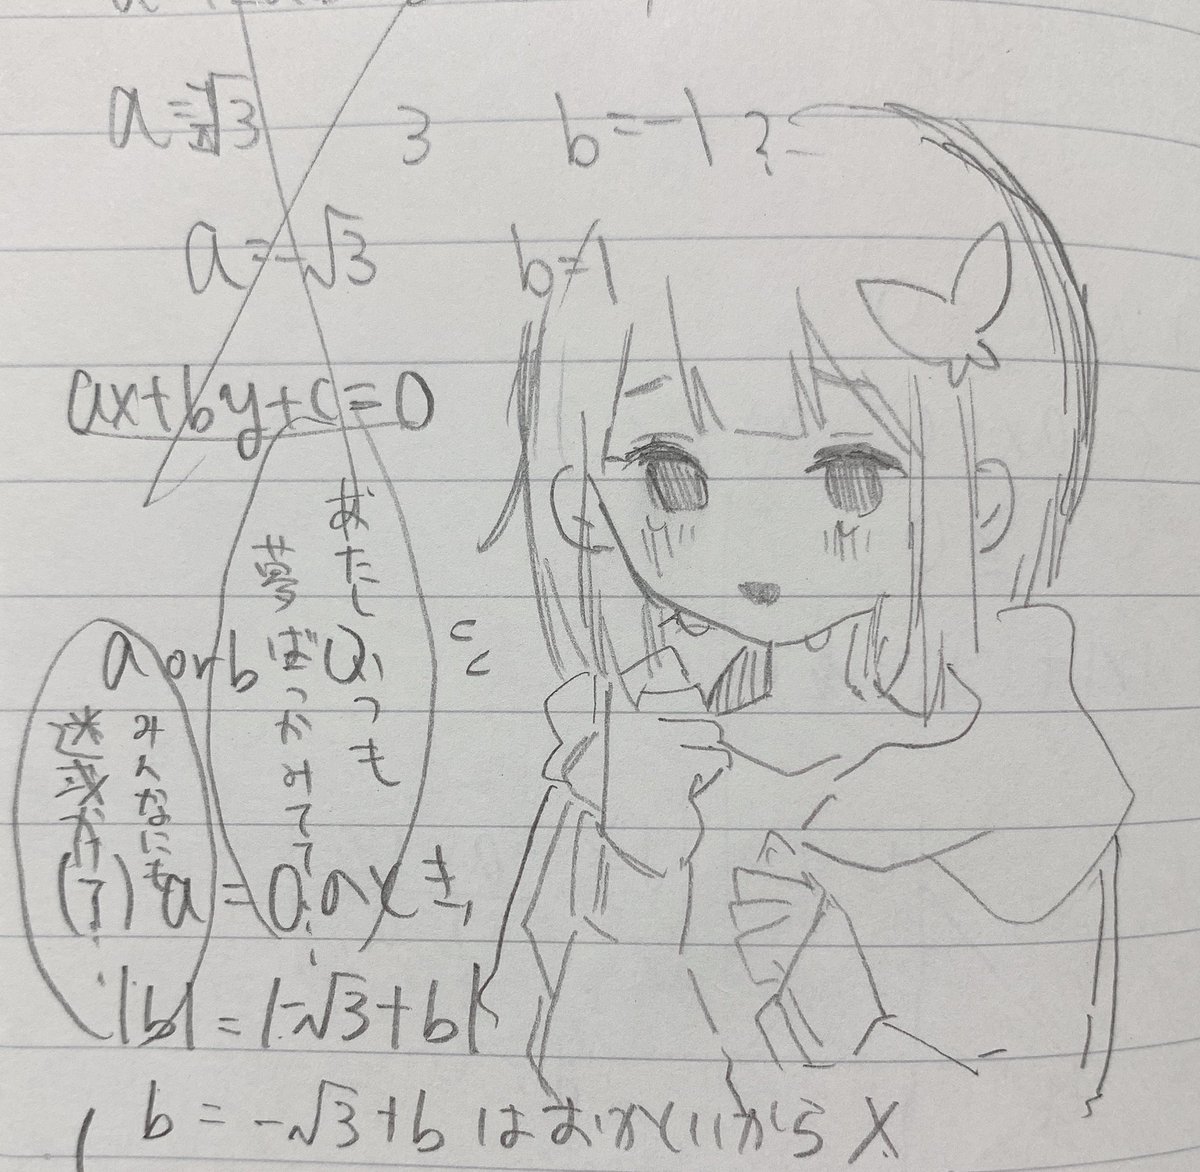 a=√3 3 b=-1?
a=-√3 b=1
ax+by+c=0
あたしいつも
夢ばっかみてて…
a or b
みんなにも
迷惑かけて…
(i) a=0のとき,
|b|=|-√3+b|
b=-√3+bはおかしいから×